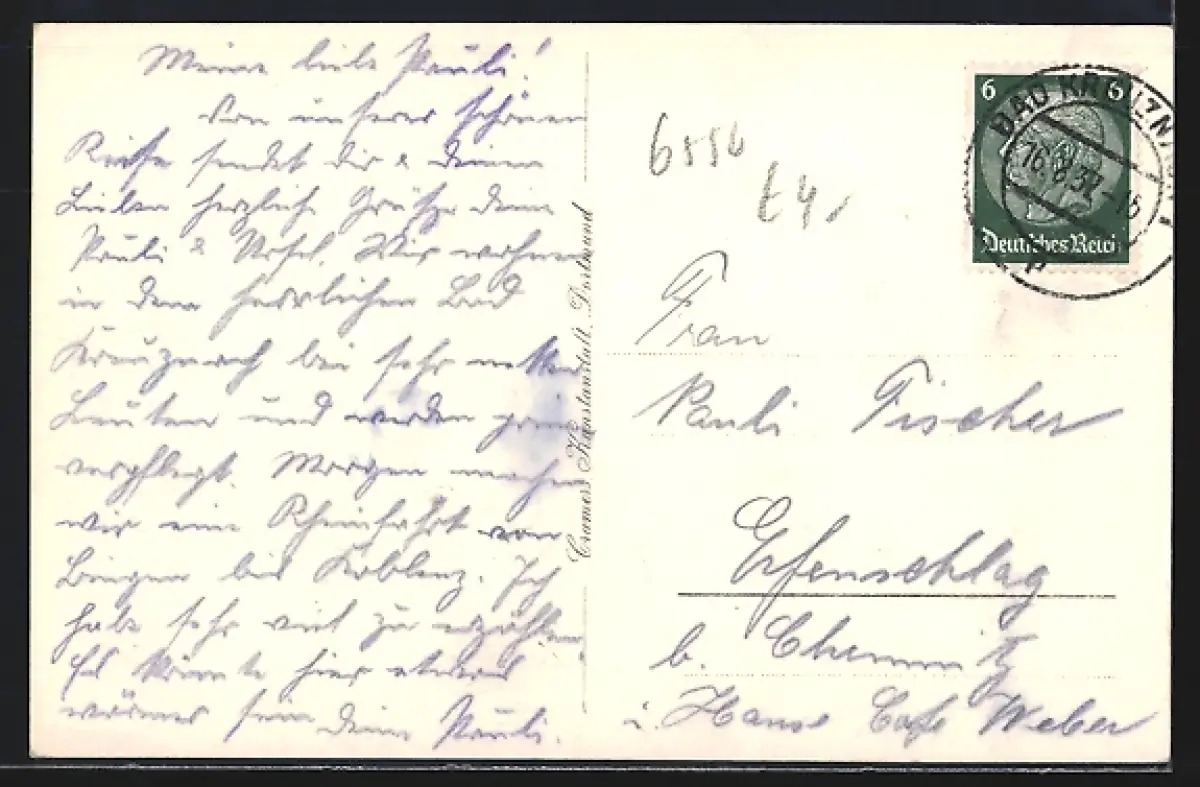 Meine liebe Pauli!
Von unserer schönen
Reise sendet dir & deinen
Lieben herzliche Grüße deine
Pauli & Ursel. Wir wohnen
in dem herrlichen Bad
Kreuznach bei sehr netten
Leuten und werden prima
verpflegt. Morgen machen
wir eine Rheinfahrt von
Bingen bis Koblenz. Ich
habe sehr viel zu erzählen.
Es könnte hier etwas
wärmer sein deine Pauli.
Cramers Kunstanstalt, Dortmund
6
6
BAD KREUZNACH
16.8.37-16
Deutsches Reich
Frau
Pauli Fischer
Erfenschlag
b. Chemnitz
i. Hause Cafe Weber